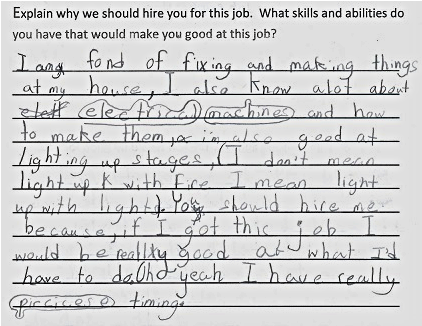 Explain why we should hire you for this job. What skills and abilities do
you have that would make you good at this job?
I am fond of fixing and making things
at my house, I also know alot about
electrical machines and how
to make them, i'm also good at
lighting up stages, (I don't mean
light up with fire I mean light
up with lights). You should hire me
because, if I got this job I
would be really good at what I'd
have to do. Oh yeah I have really
timing.